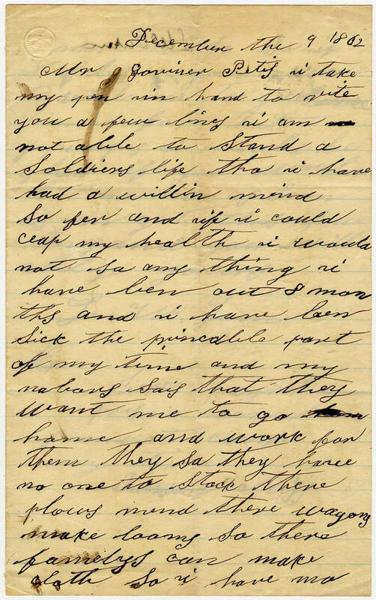 December the 9 1862
Mr goviner Petis i take
my pen in hand to rite
you a few lines i am
not able to Stand a
Soldiers life tho i have
had a willin mind
So fer and if i could
ceap my health i would
not sa any thing i
have ben out 8 mon
ths and i have ben
Sick the princable part
of my time and my
nabors Sais that they
want me to go
home and work for
them they sa they have
no one to Stock there
plows mend there wagons
make looms So there
familys can make
cloth So i have no